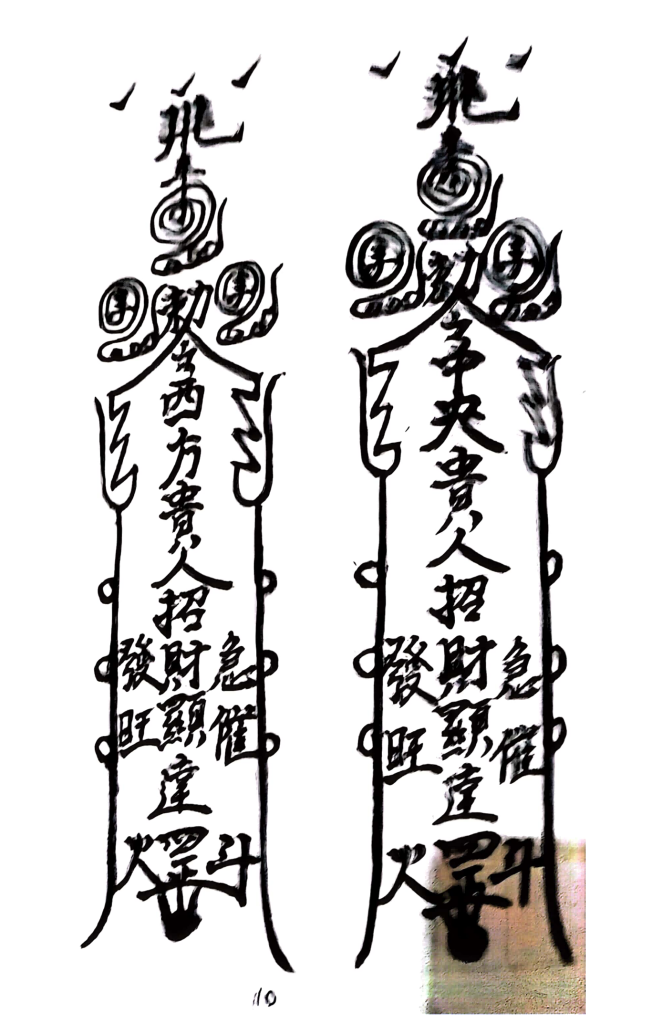 勅令西方貴人招財顯達
發旺
急催
火
斗
勅令中央貴人招財顯達
發旺
急催
火
斗
10